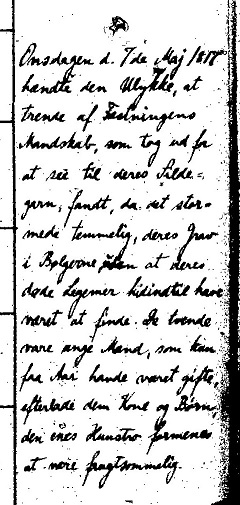 Onsdagen d. 7de Maj 18
hændte den Ulykke, at
trende af Fæstningens
Mandskab, som tog ud for
at see til deres Silde-
garn, fandt, da det stor-
mede temmelig, deres Grav
i Bølgerne uden at deres
døde Legemer hidindtil have
været at finde. De tvende
vare unge Mænd, som kun
faa Aar havde været gifte,
efterlade dem Kone og Børn,
den enes Hunstro formenes
at være frugtsommelig.